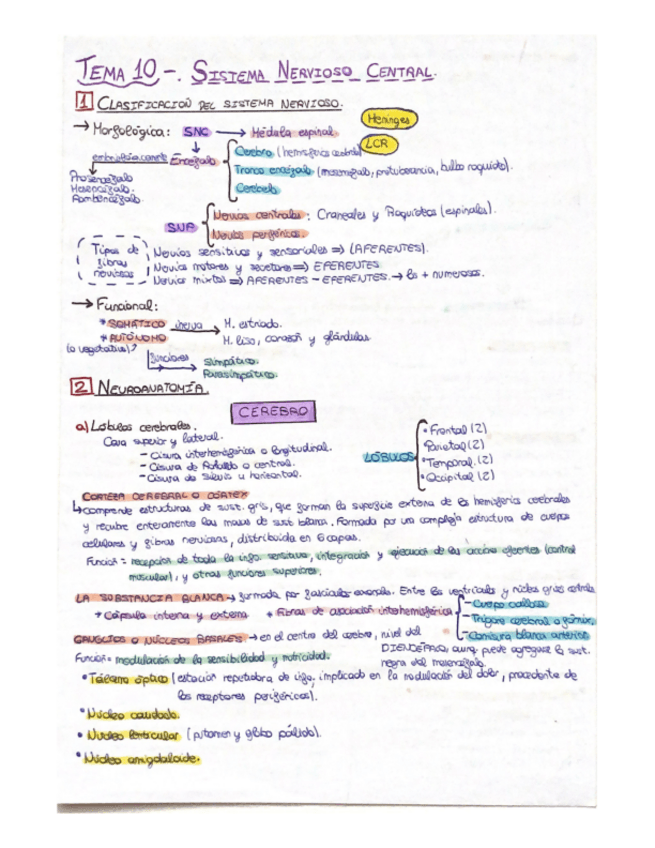 TEMA 10-. SISTEMA NERVIOSO CENTRAL.
1 CLASIFICACIÓN DEL SISTEMA NERVIOSO.
Meninges
→ Morfológica: SNC → Médula espinal
LCR
Encéfalo
Cerebro (hemisferios
Tronco encéfalo (mesencéfalo, protuberancia, bulbo raquídeo).
Cerebelo
Prosencéfalo
Mesencéfalo.
Rombencéfalo.
SNP
Nervios centrales: Craneales y Raquídeos (espinales).
Nervios periféricos.
Tipos de fibras nerviosas
Nervios sensitivos y sensoriales ⇒ (AFERENTES).
Nervios motores y secretores ⇒ EFERENTES
Nervios mixtos ⇒ AFERENTES - EFERENTES. → los + numerosos.
→ Funcional:
* SOMÁTICO inerva → M. estriado.
* AUTÓNOMO M. liso, corazón y glándulas
(o vegetativo)
funciones
Simpático.
Parasimpático.
2 NEUROANATOMÍA.
CEREBRO
a) Lóbulos cerebrales.
Cara superior y lateral.
- Cisura interhemisférica o longitudinal.
- Cisura de Rolando o central.
- Cisura de Silvio u horizontal.
LÓBULOS
• Frontal (2)
Parietal (2)
• Temporal. (2)
• Occipital (2)
CORTEZA CEREBRAL O CÓRTEX
↳ comprende estructuras de sust. gris, que forman la superficie externa de los hemisferios cerebrales
y recubre enteramente las masas de sust blanca. Formada por una compleja estructura de cuerpos
celulares y fibras nerviosas, distribuida en 6 capas.
Función = recepción de toda la info. sensitiva, integración y ejecución de las acciones eferentes (control
muscular), y otras funciones superiores.
LA SUBSTANCIA BLANCA → formada por fascículos axonales. Entre los ventrículos y núcleos grises centrales
* Cápsula interna y externa * Fibras de asociación interhemisférica
- Cuerpo calloso
- Trígono cerebral o fórnix.
- Comisura blanca anterior
GANGLIOS O NÚCLEOS BASALES → en el centro del cerebro, nivel del
DIENCÉFALO, aunq. puede agregarse la sust.
negra del mesencéfalo.
Función= modulación de la sensibilidad y motricidad.
• Tálamo óptico (estación repetidora de info, implicado en la modulación del dolor, procedente de
los receptores periféricos).
• Núcleo caudado.
• Núcleo lenticular (putamen y globo pálido).
• Núcleo amigdaloide.